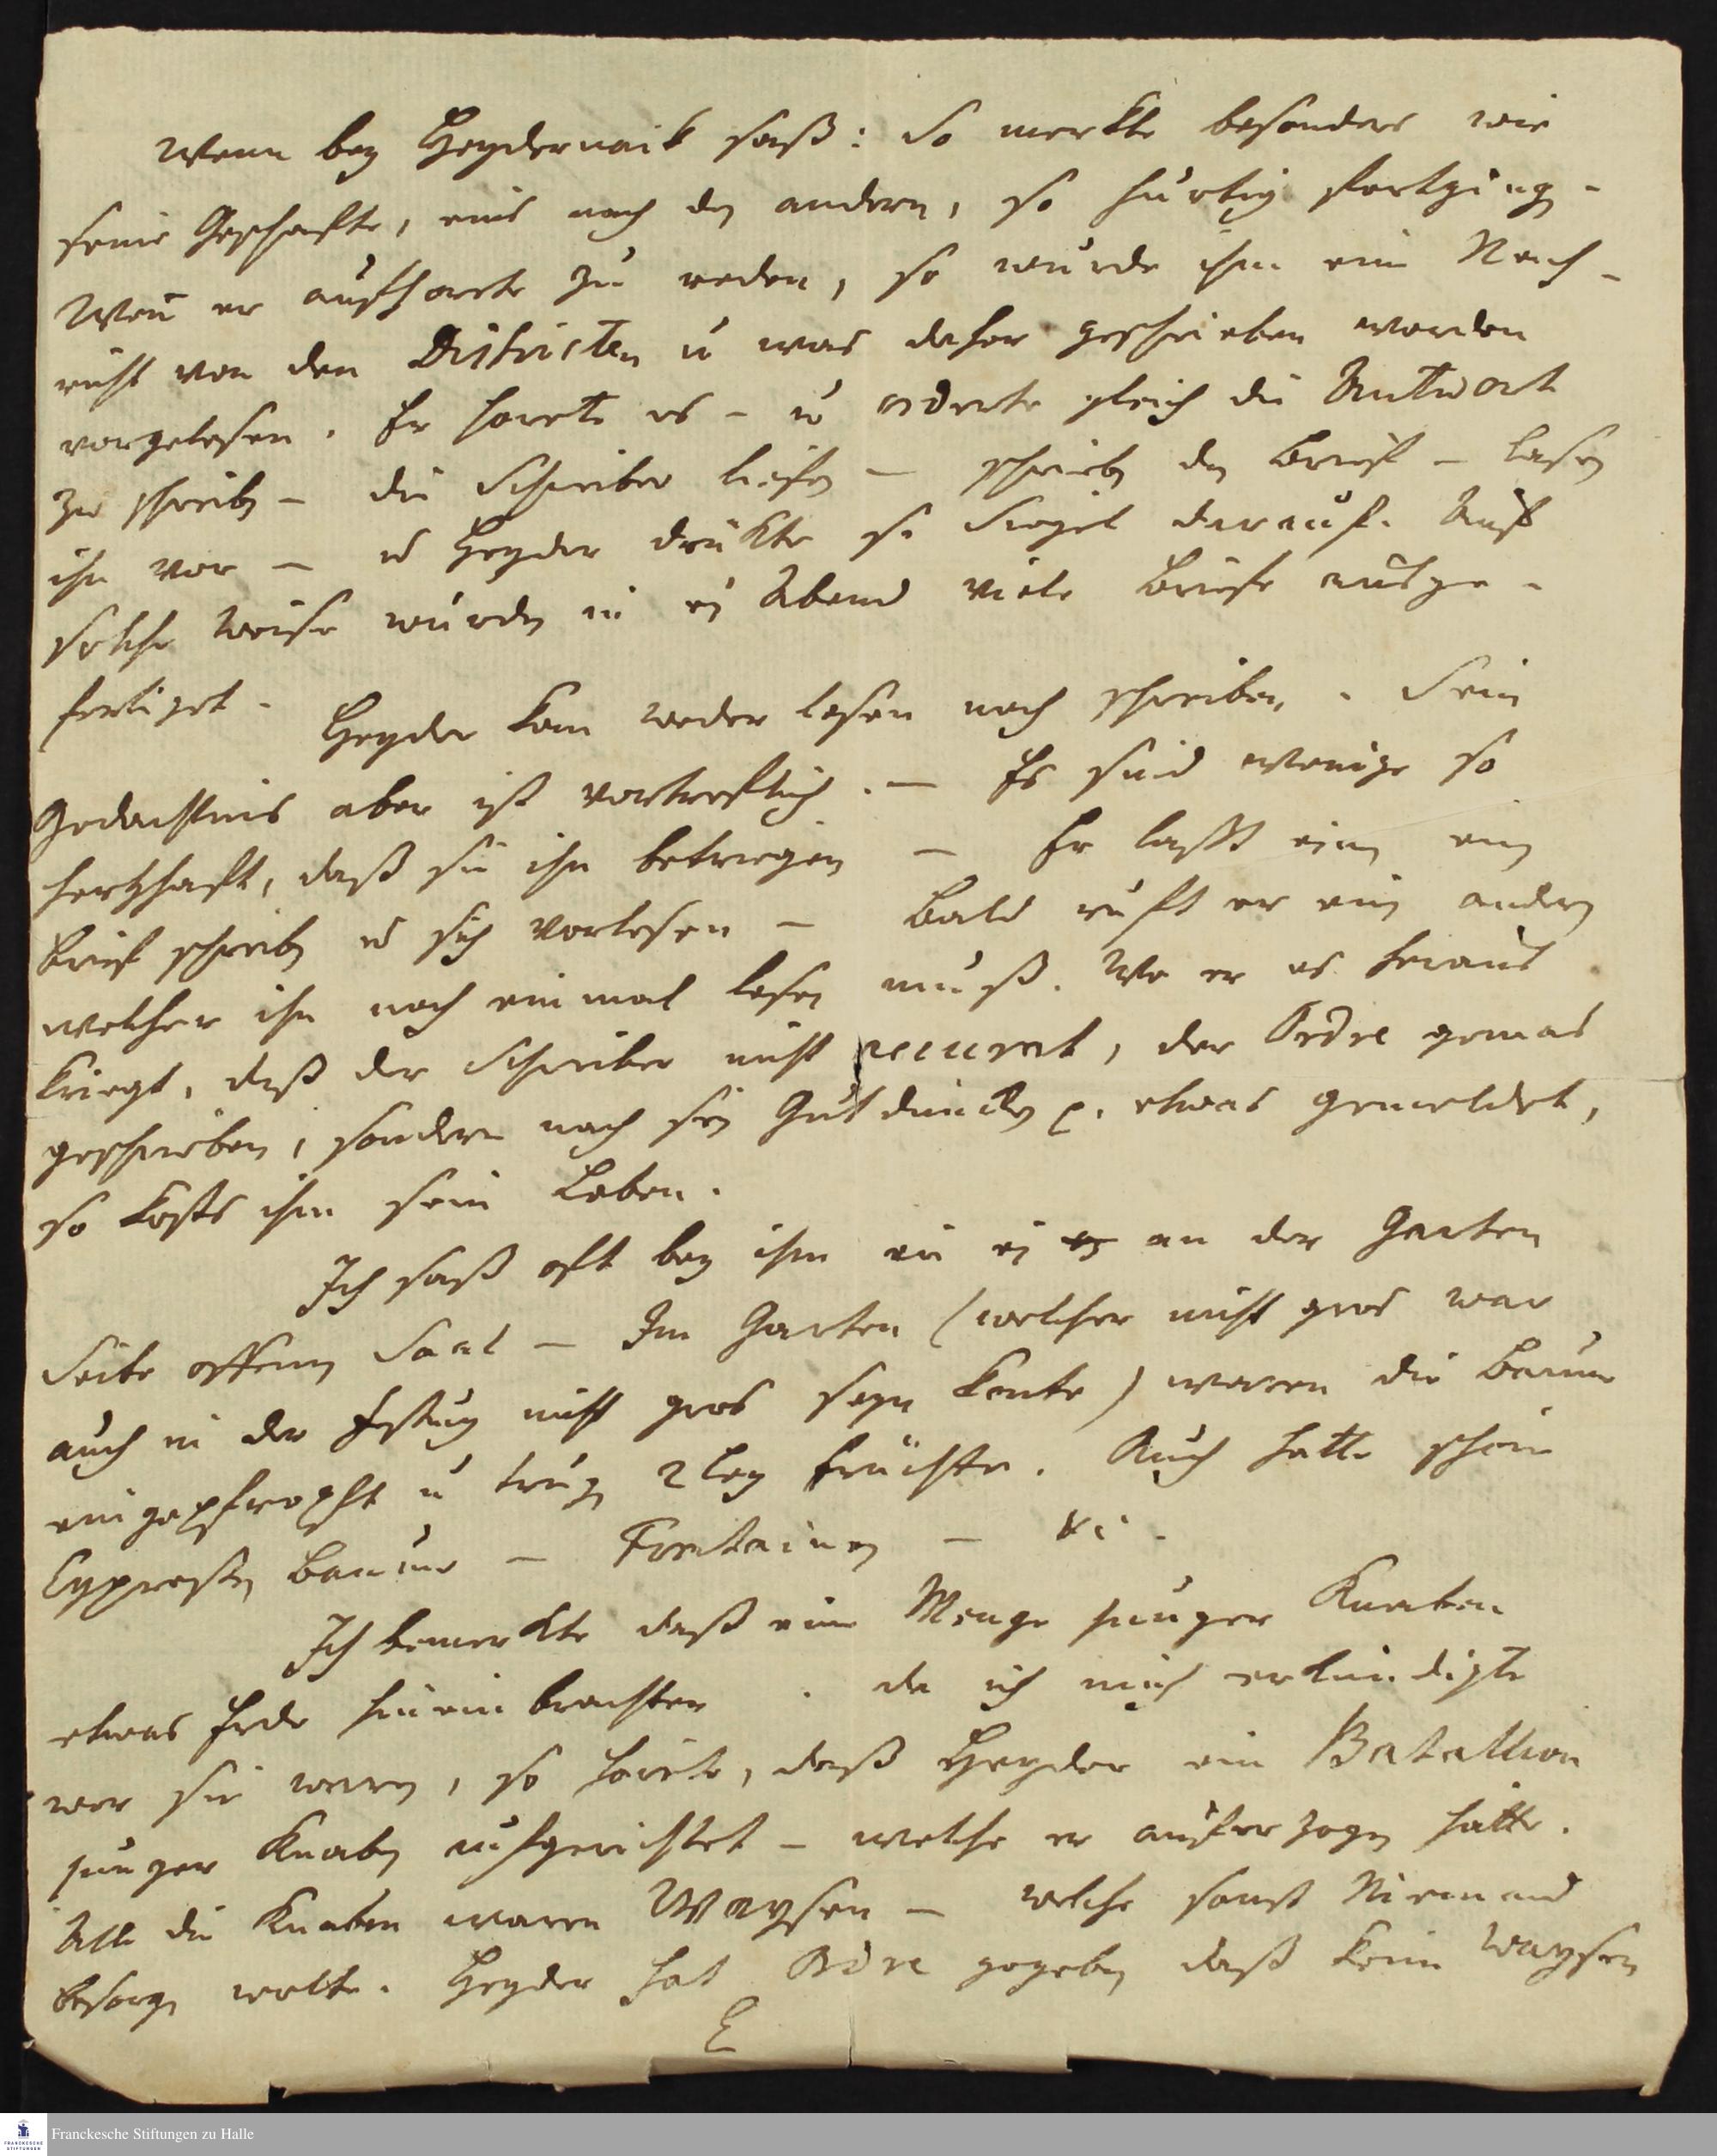 Wenn bey Heydernaik saß: So merkte besonders wie
seine Geschafte, eins nach den andern, so hurtig fortging.
Wen er aufhorte zu reden, so wurde ihm eine Nach-
richt von den Districten u was daher geschrieben worden
vorgelesen. Er horete es – u orderte gleich die Antwort
zu schreiben – die Schreiber liefen – schrieben den Brief – lasen
ihn vor – u Heyder drukte s. Siegel darauf. Auf
solche Weise wurden in ein Abend viele Briefe ausge-
fertiget.
Heyder kan weder lesen noch schreiben. Sein
Gedachtnis aber ist vortreflich. – Es sind wenige so
hertzhaft, daß sie ihn betriegen – Er lasst einen ein
Brief schreiben u sich vorlesen – Bald ruft er ein andern
welcher ihn noch einmal lesen muß. Wo er es heraus
kriegt, daß der Schreiber nicht accurat, der Ordre gemas
geschrieben, sondern nach sein Gutdüncken p. etwas gemeldet,
so kosts ihm sein Leben.
Ich saß oft bey ihm in ein an der Garten
Seite offenen Saal – Im Garten (welcher nicht gros war
auch in der Festung nicht gros seyn konte) waren die Baume
eingepfropft u trugen 2ley Früchte. Auch hatte schöne
Cypressen Baume – Fontainen – &c.
Ich bemerkte daß eine Menge junger Knaben
etwas Erde hinein brachten. da ich mich erkundigte
wer sie waren, so hörete, daß Heyder ein Batallion
junger Knaben aufgerichtet – welche er auferzogen hätte.
Alle die Knaben waren Waysen – welche sonst Niemand
besorgen wolte. Heyder hat Ordre gegeben daß keine Waysen
E
Franckesche Stiftungen zu Halle
FRANCKESCHE STIFTUNGEN